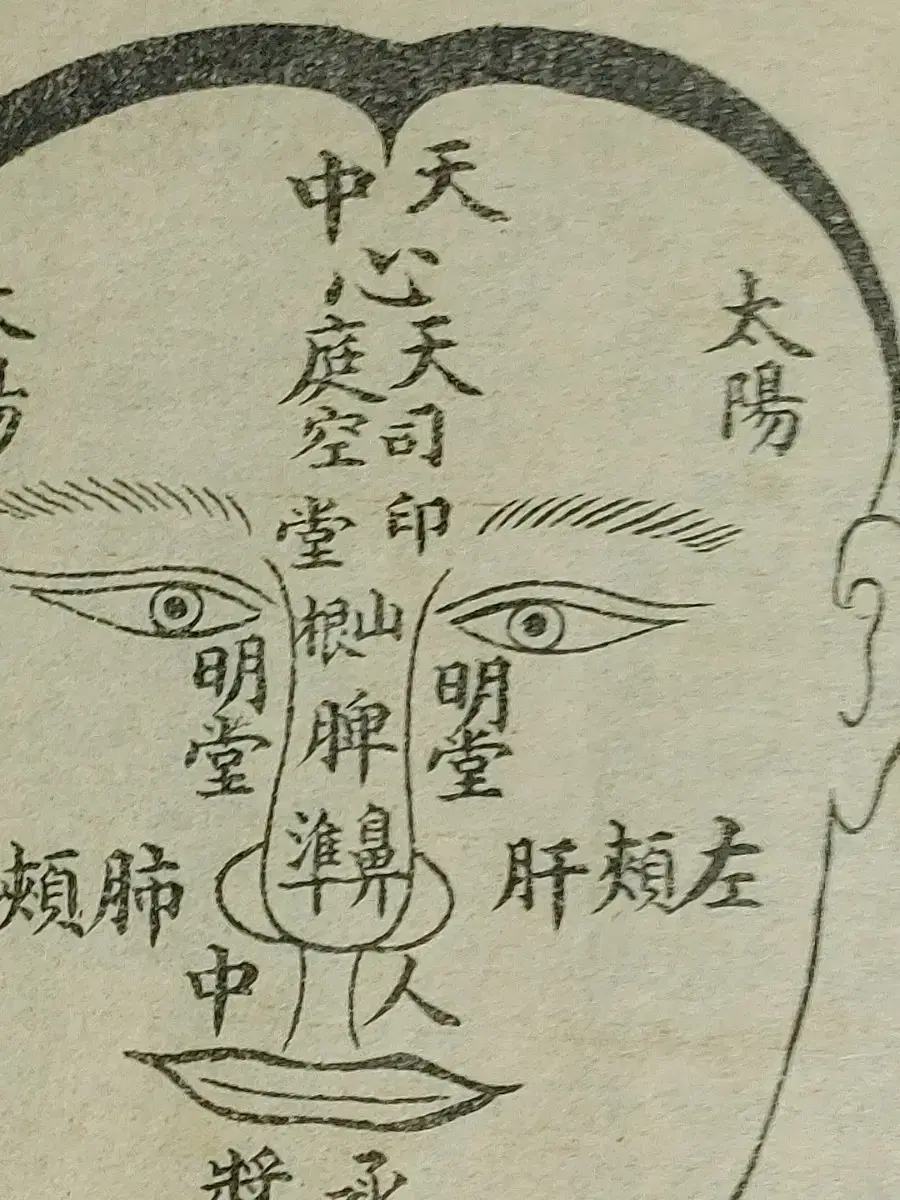 天中
心
天庭
太陽
司空
印堂
山根
明堂
明堂
脾
鼻準
左頰肝
頰肺
人中